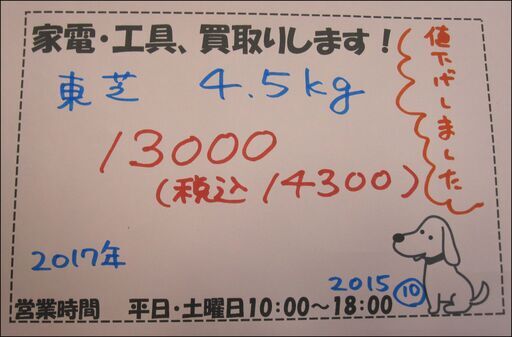 家電・工具、買取りします！
値下げしました
東芝 4.5kg
13000
(税込14300)
2017年
2015 ⑩
営業時間 平日・土曜日10:00～18:00